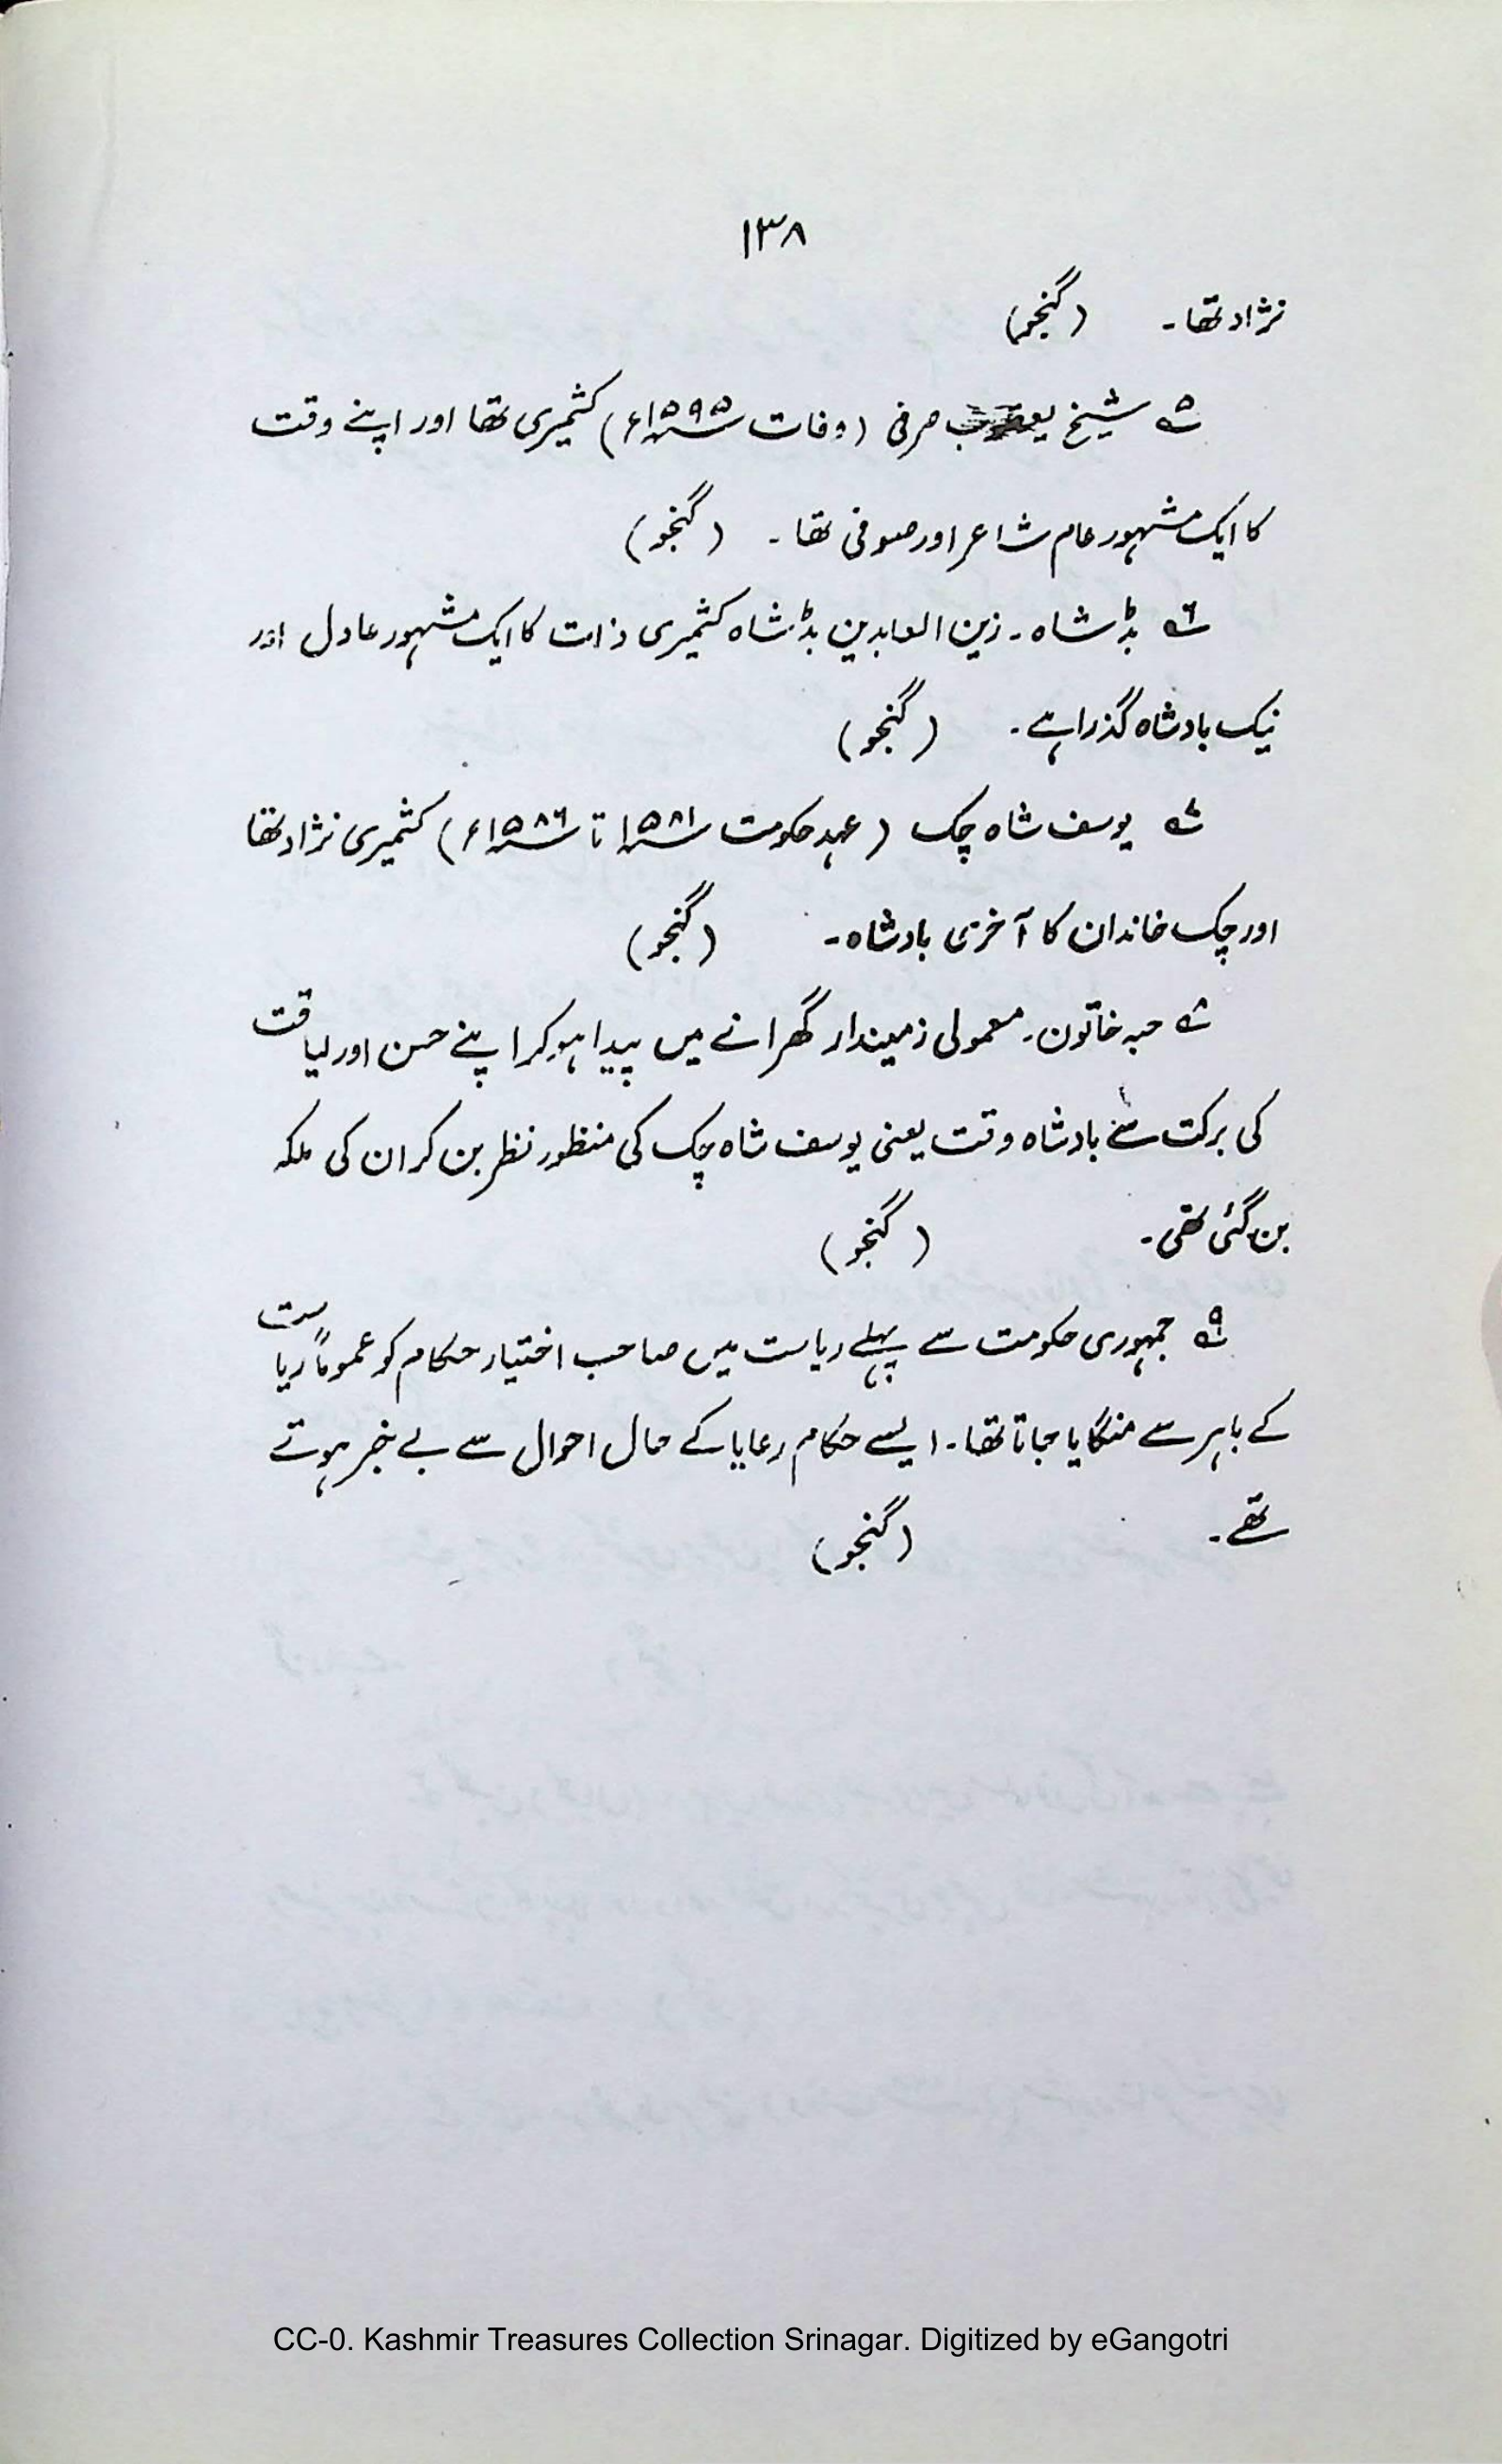 ۱۳۸
نژاد تھا۔ (گنجو)
۵؎ شیخ یعقوب صرفی (وفات ۱۵۹۵ء) کشمیری تھا اور اپنے وقت
کا ایک مشہور عام شاعر اور صوفی تھا۔ (گنجو)
۶؎ بڈشاہ۔ زین العابدین بڈشاہ کشمیری ذات کا ایک مشہور عادل اور
نیک بادشاہ گذرا ہے۔ (گنجو)
۷؎ یوسف شاہ چک (عہد حکومت ۱۵۸۱ تا ۱۵۸۶ء) کشمیری نژاد تھا
اور چک خاندان کا آخری بادشاہ۔ (گنجو)
۸؎ حبہ خاتون۔ معمولی زمیندار گھرانے میں پیدا ہو کر اپنے حسن اور لیاقت
کی برکت سے بادشاہ وقت یعنی یوسف شاہ چک کی منظور نظر بن کر ان کی ملکہ
بن گئی تھی۔ (گنجو)
۹؎ جمہوری حکومت سے پہلے ریاست میں صاحب اختیار حکام کو عموماً ریاست
کے باہر سے منگایا جاتا تھا۔ ایسے حکام رعایا کے حال احوال سے بے خبر ہوتے
تھے۔ (گنجو)
CC-0. Kashmir Treasures Collection Srinagar. Digitized by eGangotri